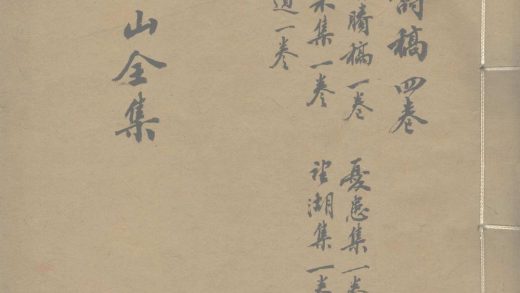 稿 四卷
賸稿 一卷 憂患集 一卷
集 一卷 湖集 一卷
一卷
山全集